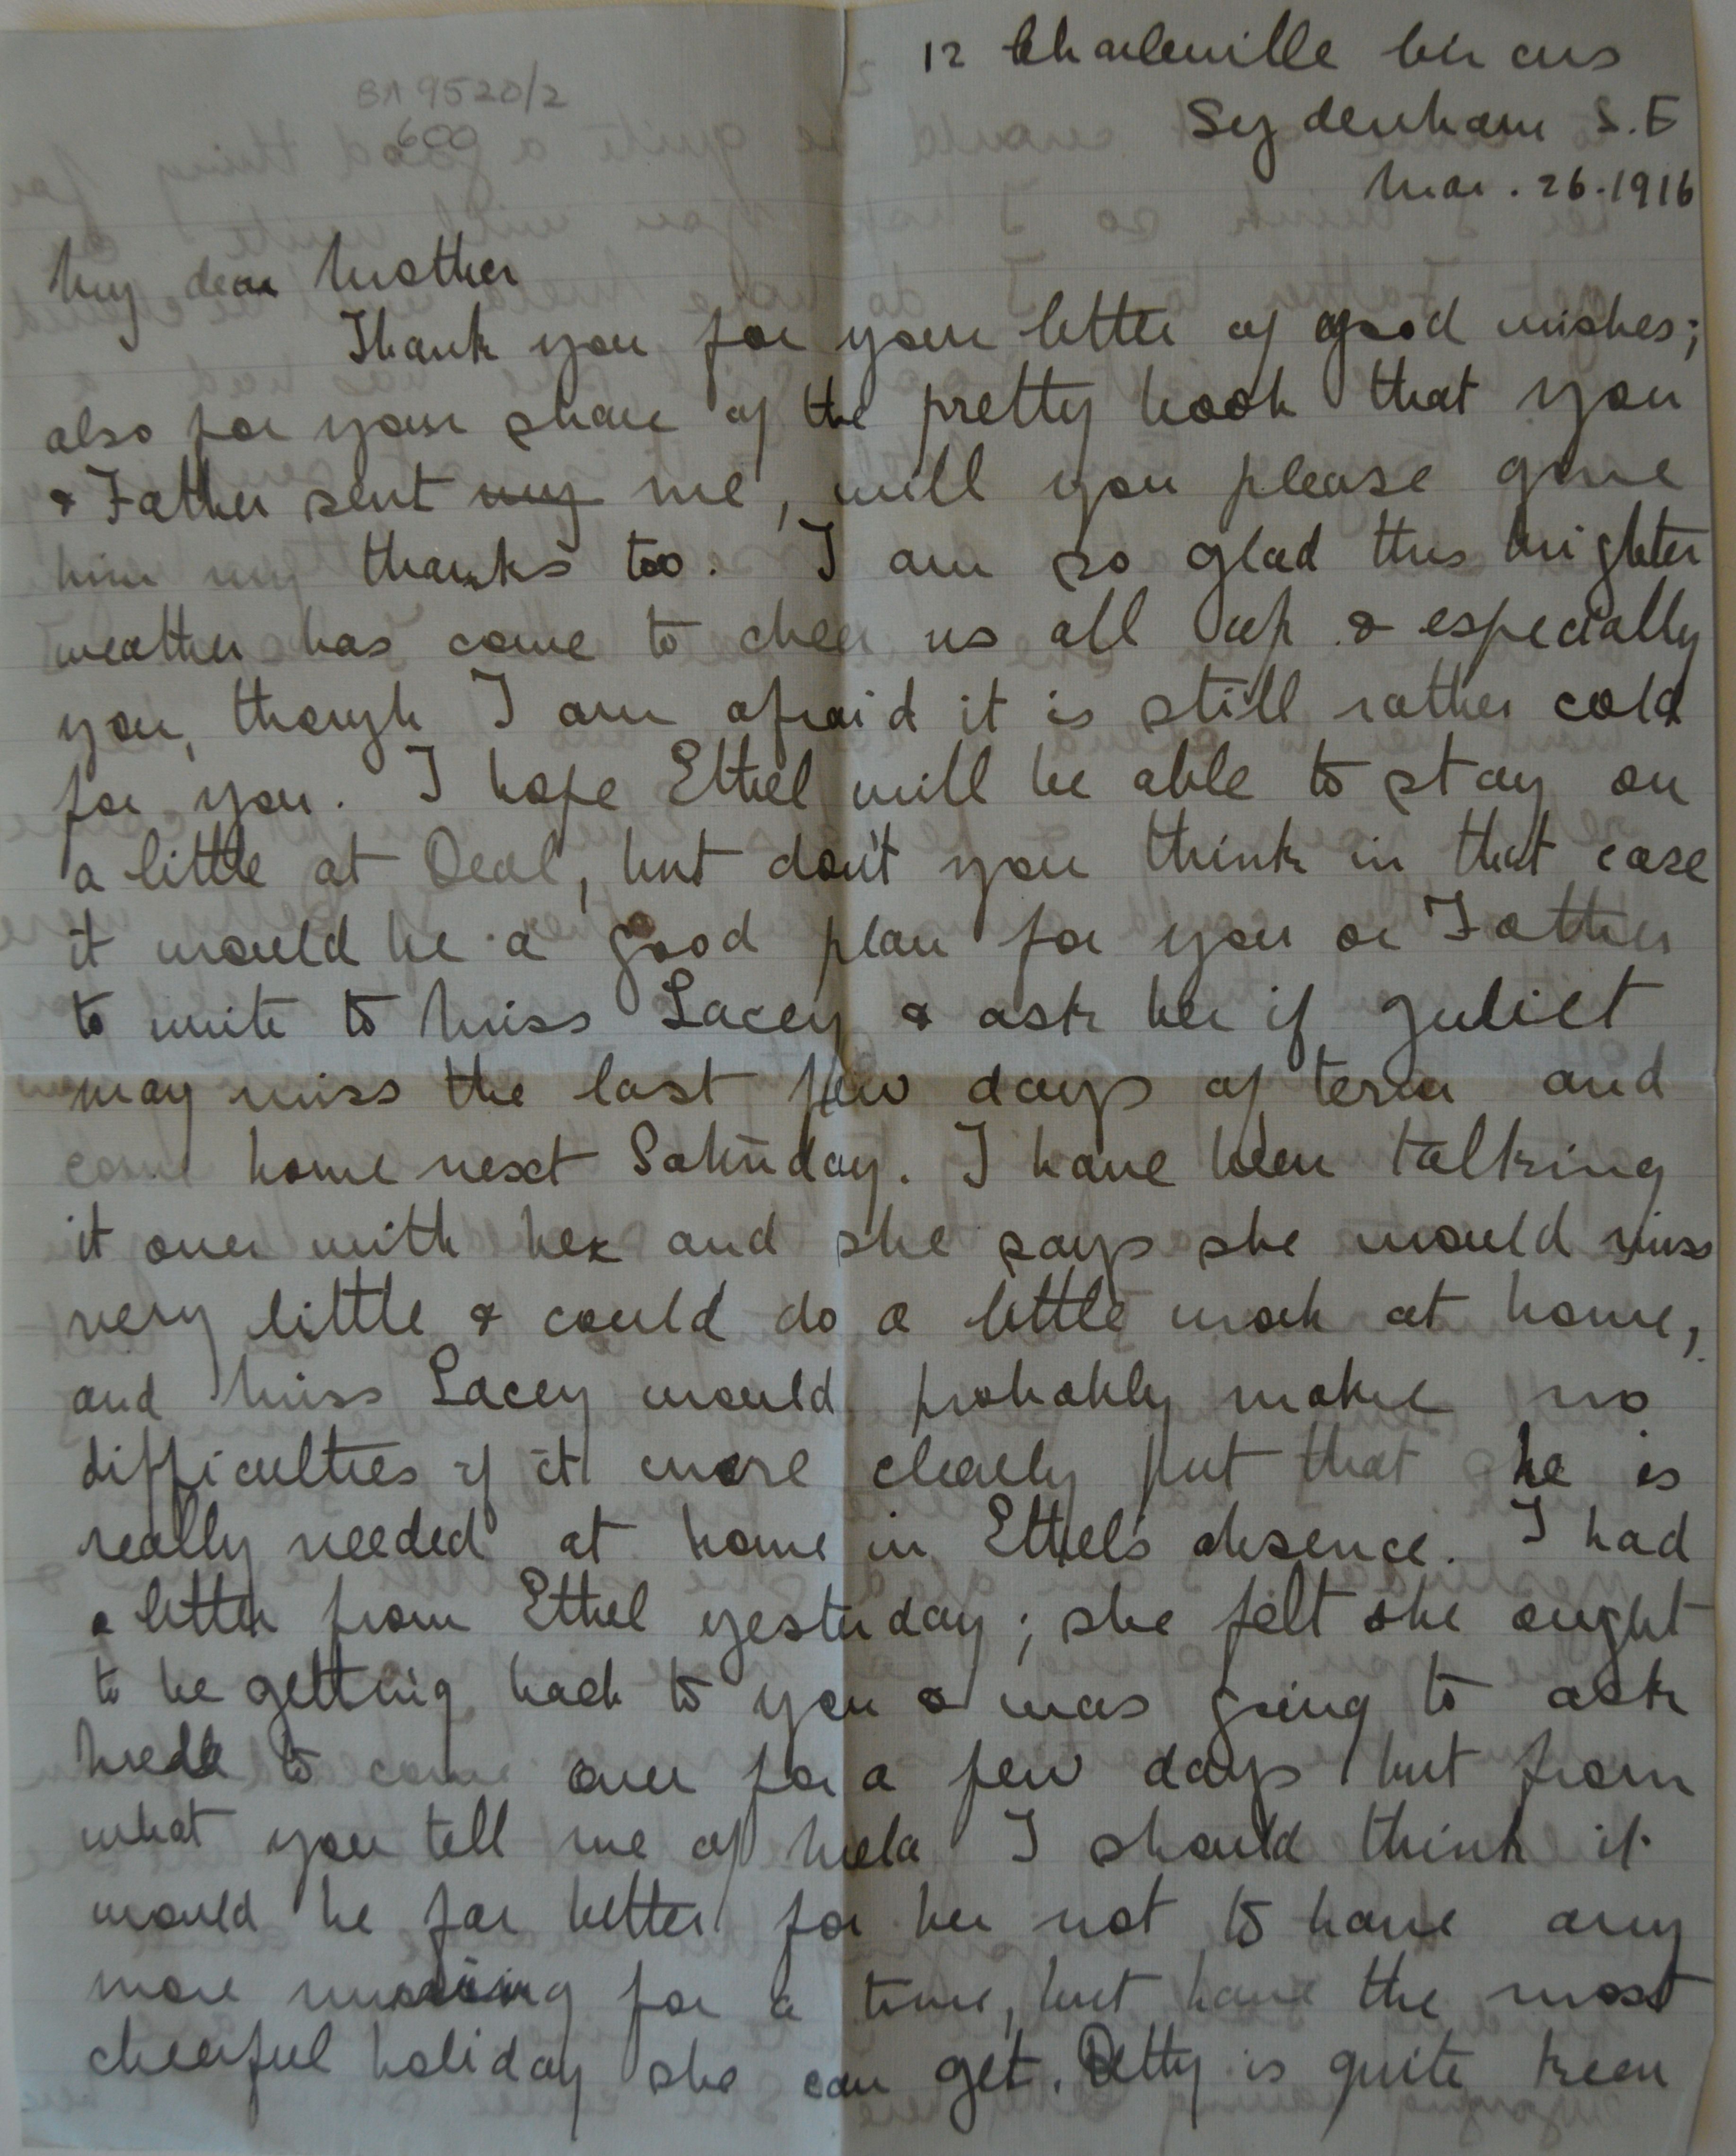 BA 9520/2
600
12 Charleville Circus
Sydenham S.E
Mar. 26. 1916
My dear Mother
Thank you for your letter of good wishes;
also for your share of the pretty book that you
& Father sent my me, will you please give
him my thanks too. I am so glad this brighter
weather has come to cheer us all up & especially
you, though I am afraid it is still rather cold
for you. I hope Ethel will be able to stay on
a little at Deal, but don't you think in that case
it would be a good plan for you or Father
to write to Miss Lacey & ask her if Juliet
may miss the last few days of term and
come home next Saturday. I have been talking
it over with her and she says she would miss
very little & could do a little work at home,
and Miss Lacey would probably make no
difficulties if it were clearly put that she is
really needed at home in Ethel's absence. I had
a letter from Ethel yesterday; she felt she ought
to be getting back to you & was going to ask
Mela to come over for a few days but from
what you tell me of Mela I should think it
would be far better for her not to have any
more nursing for a time, but have the most
cheerful holiday she can get. Betty is quite keen